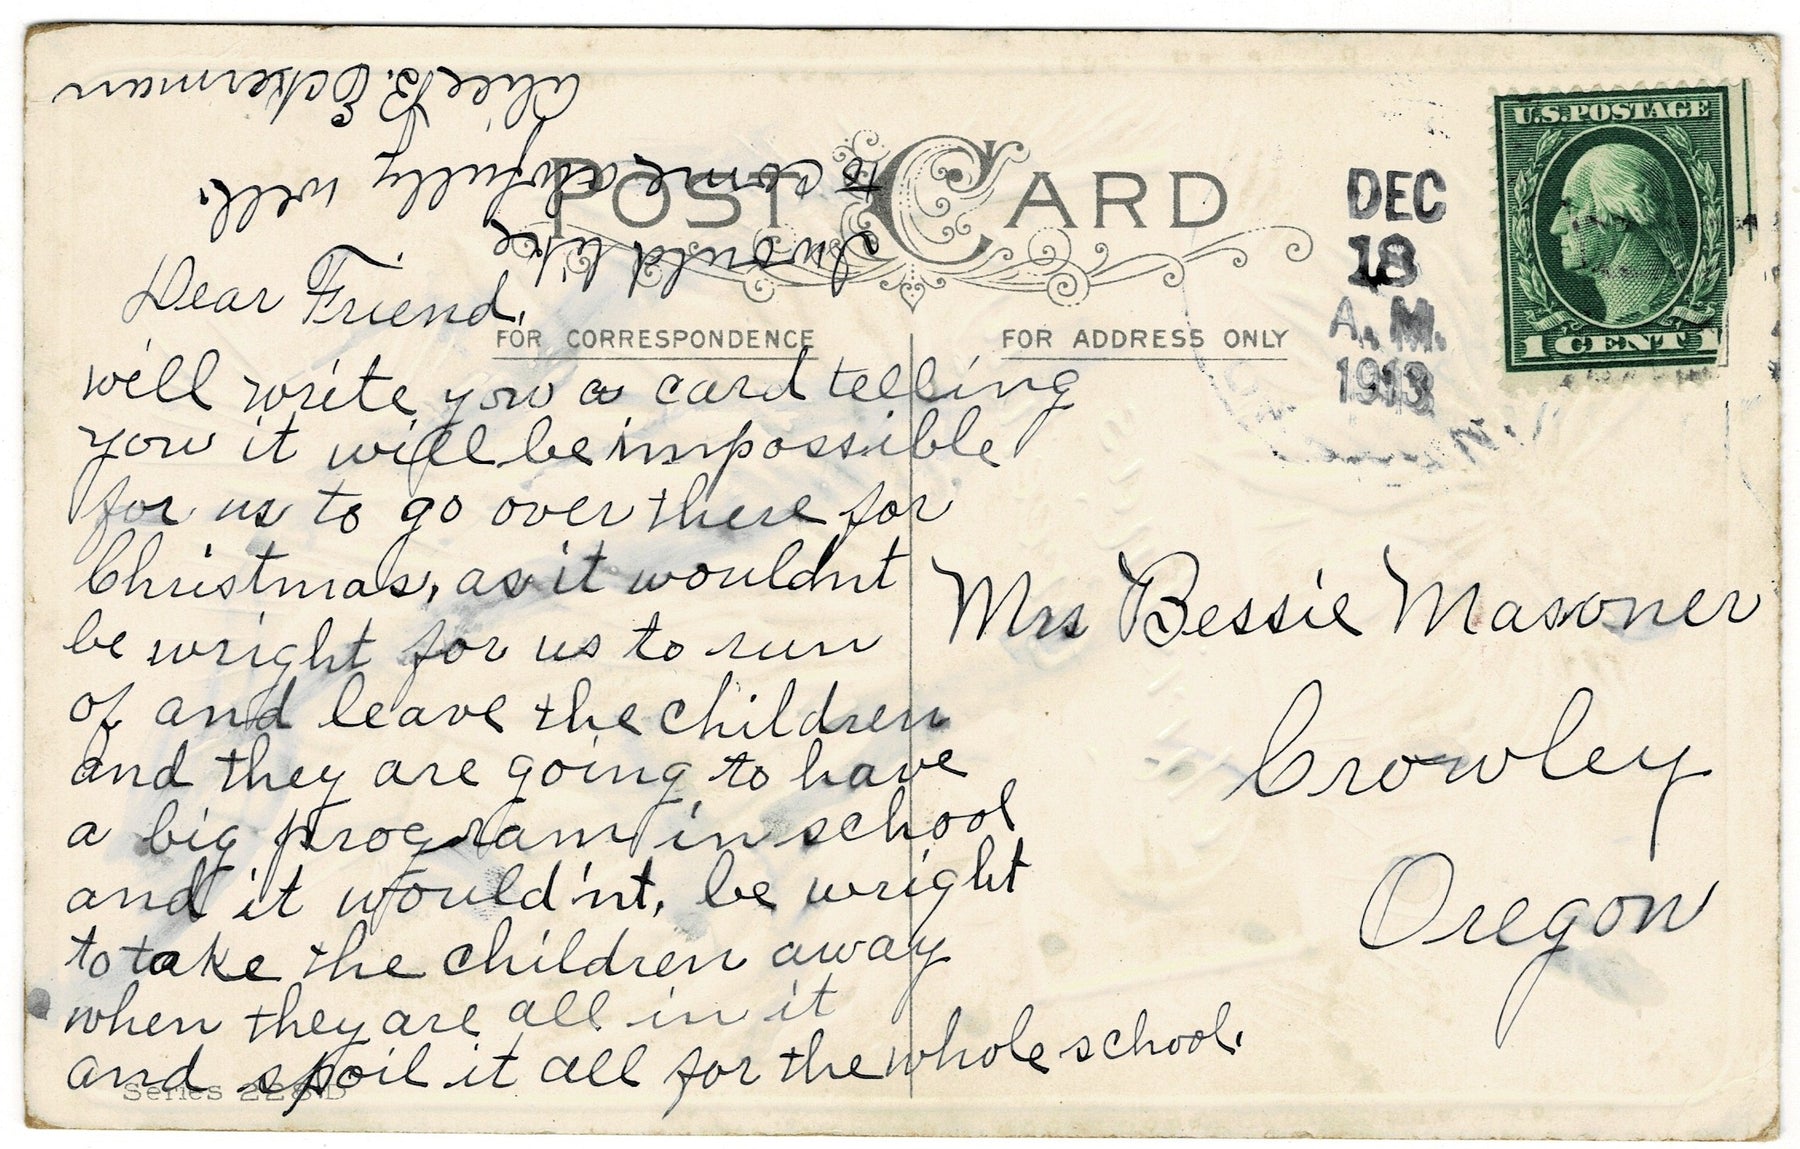 POST CARD
FOR CORRESPONDENCE
FOR ADDRESS ONLY
U.S. POSTAGE
1 CENT 1
DEC
18
A.M.
1913
Dear Friend,
will write you a card telling
you it will be impossible
for us to go over there for
Christmas, as it wouldnt
be wright for us to run
of and leave the children
and they are going to have
a big program in school
and it would'nt, be wright
to take the children away
when they are all in it
and spoil it all for the whole school.
I would like
to come awfully well.
Alice B. Eckerman
Mrs Bessie Masoner
Crowley
Oregon
Series 228 D